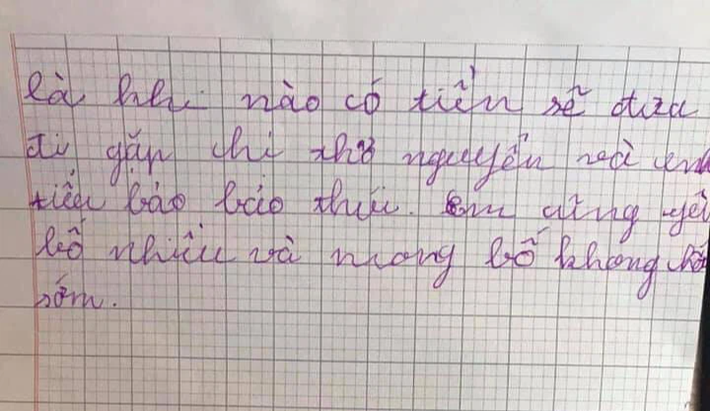 là khi nào có tiền sẽ đưa
đi gặp chị thơ nguyễn và em
tiểu bảo bảo thúi. Em cũng yê
bố nhiều và mong bố không hói
sớm.